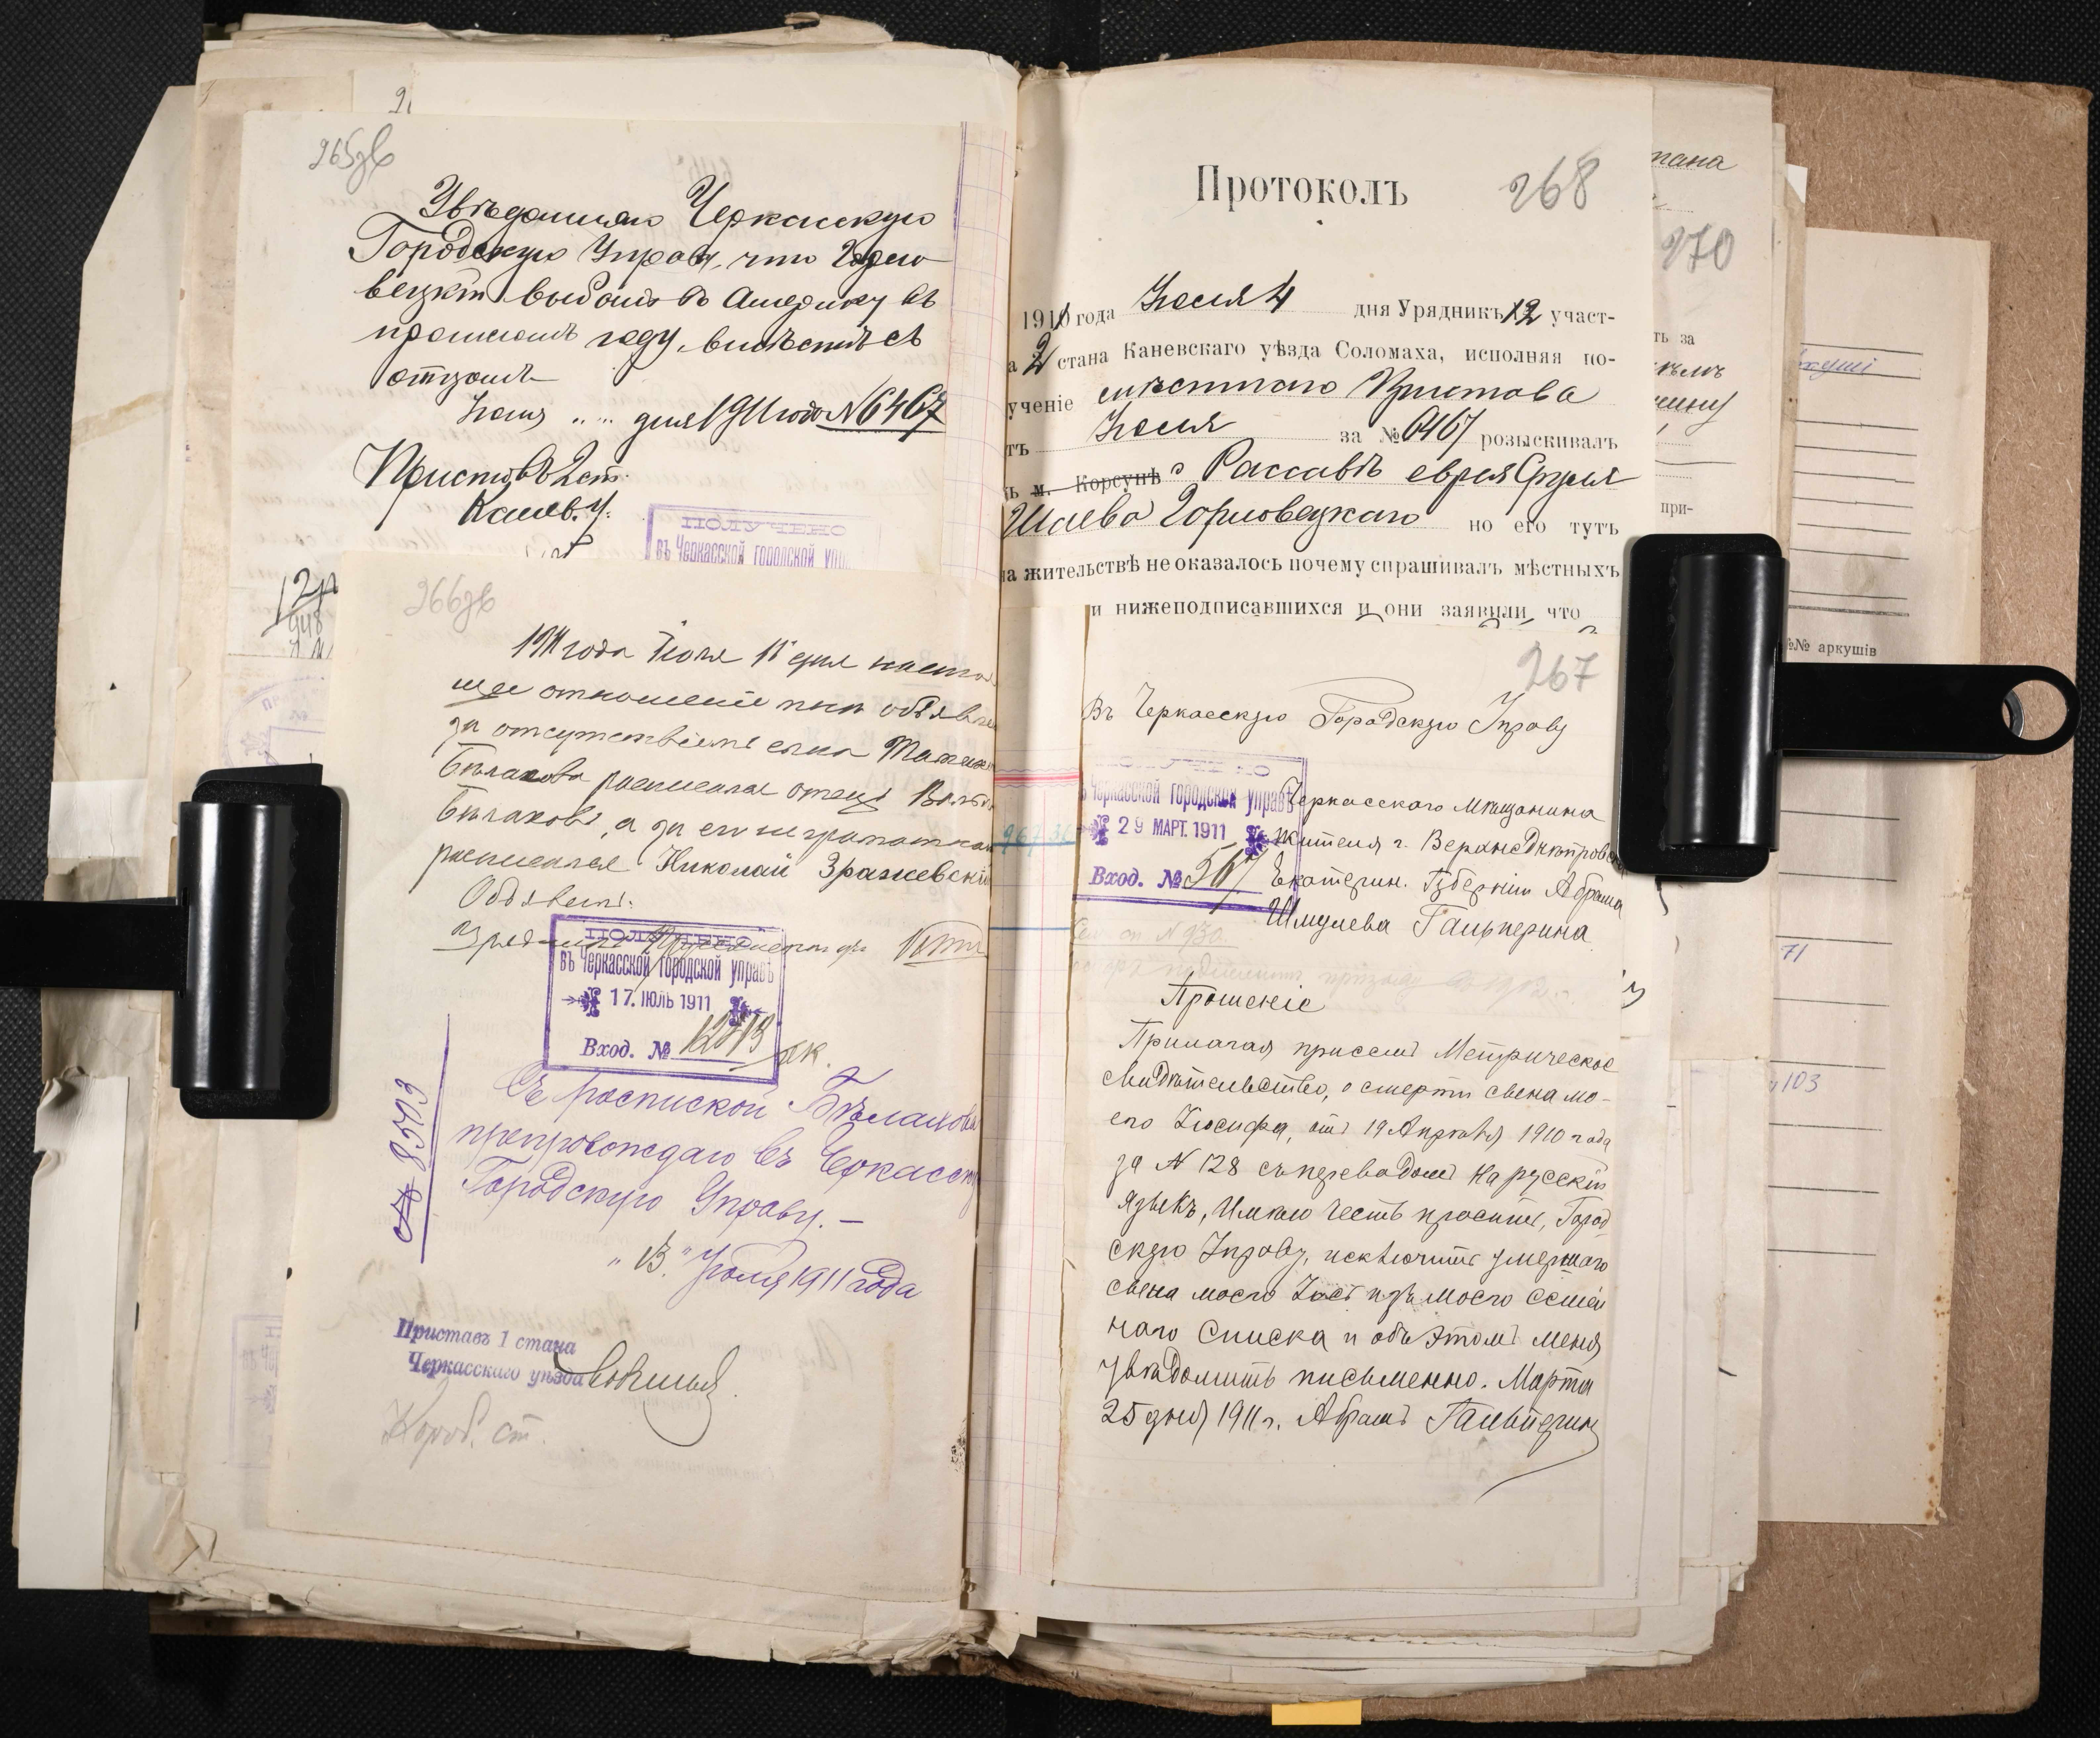 265зв
Увѣдомляю Черкасскую
Городскую Управу, что Горло
вецкій выбылъ въ Америку въ
прошломъ году, вмѣстѣ съ
отцомъ
Іюля „ „ дня 1911 года № 6467
Приставъ 2 ст.
Канев. у.
ПОЛУЧЕНО
въ Черкасской городской упр
266зв
1911 года Іюля 11 дня настоя
щее отношеніе мною объявле
за отсутствіемъ сына
Бѣлахова росписался отецъ
Бѣлаховъ, а за его неграмотно
росписался Николай Зражевскій
Объявилъ:
Урядникъ
ПОЛУЧЕНО
въ Черкасской городской управѣ
17. ІЮЛЬ 1911
Вход. №
№ 8503
Съ роспиской Бѣлахова
препровождаю въ Черкасску
Городскую Управу. —
„ 13 " Іюля 1911 года
Приставъ 1 стана
Черкасскаго уѣзда
Протоколъ
268
1911 года Іюля 4 дня Урядникъ 12 участ-
а 2 стана Каневскаго уѣзда Соломаха, исполняя по-
ученіе мѣстнаго Пристава
тъ Іюля за № 6467 розыскивалъ
ъ м. Корсунѣ с Россавѣ еврея Сруля
Шаева Горловецкаго но его тутъ
на жительствѣ не оказалось почему спрашивалъ мѣстныхъ
и нижеподписавшихся и они заявили что
267
Въ Черкасскую Городскую Управу
ПОЛУЧЕНО
въ Черкасской городской управѣ
29 МАРТ. 1911
Вход. № 567
Черкасскаго мѣщанина
жителя г. Верхнеднѣпровс
Екатерин. Губерніи Абрама
Шмулева Гальперина
Прошеніе
Прилагая присемъ Метрическое
свидѣтельство, о смерти сына мо-
его Іюсифа, отъ 19 Апрѣля 1910 года
за № 128 съ переводомъ на русскій
языкъ, Имѣю честь просить, Город
скую Управу, исключить умершаго
сына моего Іосъ изъ моего семей
наго списка и объ этомъ меня
увѣдомить письменно. Марта
25 дня 1911 г. Абрамъ Гальперинъ
270
ть за
при-
№№ аркушів
71
103